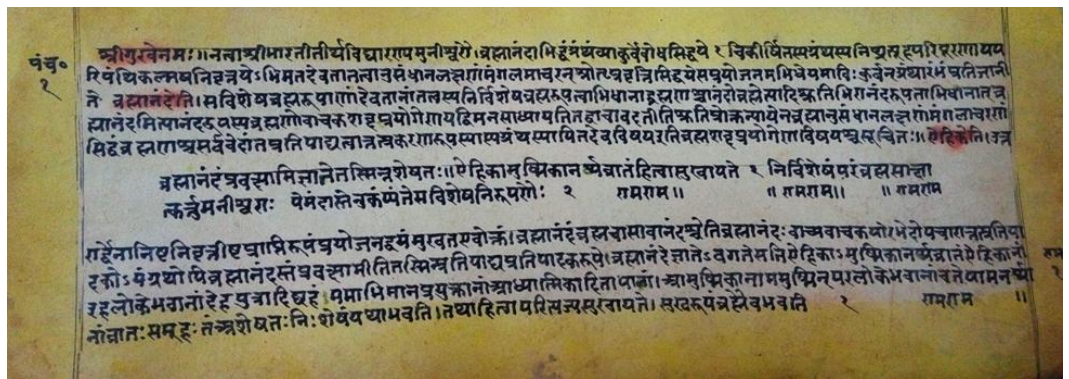 पंच०
१
श्रीगुरवेनमः॥नत्वाश्रीभारतीतीर्थविद्यारण्यमुनीश्वरौ।ब्रह्मानंदाभिदंग्रंथंव्याकुर्वेबोधसिद्धये १ चिकीर्षितस्यग्रंथस्यनिष्प्रत्यूहपरिपूरणाय
रिपंथिकल्मषनिवृत्तयेऽभिमतदेवतानत्वानुसंधानलक्षणंमंगलमाचरन्श्रोतृप्रवृत्तिसिद्धयेसप्रयोजनमभिधेयमाविःकुर्वन्ग्रंथारंभंप्रतिजानी
ते ब्रह्मानंदेति।सविशेषब्रह्मरूपाणांदेवतानांतत्वस्यनिर्विशेषब्रह्मरूपत्वाभिधानाद्ब्रह्मणश्चानंदोब्रह्मेत्यादिश्रुतिभिरानंदरूपताभिधानातब्र
ह्मानंदमित्यानंदरूपस्यब्रह्मणोवाचकशब्दप्रयोगेणयद्धिमनसाध्यायतितद्वाचावदतीतिश्रुतिप्रोक्तन्यायेनब्रह्मानुसंधानलक्षणंमंगलाचरणं
सिद्धंब्रह्मणश्चसर्ववेदांतप्रतिपाद्यत्वात्तत्प्रकरणरूपस्यास्यग्रंथस्यापितदेवविषयइतिब्रह्मशब्दप्रयोगेणविषयश्चसूचितः॥ऐहिकेति।उत्र
ब्रह्मानंदंप्रवक्ष्यामिज्ञातेतस्मिन्नशेषतः॥ऐहिकामुष्मिकानर्थव्रातंहित्वासुखायते १ निर्विशेषंपरंब्रह्मसाक्षा
त्कर्तुमनीश्वराः येमंदास्तेनुकंप्यंतेसविशेषनिरूपणैः २ रामराम॥ ॥रामराम॥ ॥रामराम
रार्द्धेनानिष्टनिवृत्तीष्टप्राप्तिरूपंप्रयोजनद्वयंमुखतएवोक्तं।ब्रह्मानंदंब्रह्मचासावानंदश्चेतिब्रह्मानंदःवाच्यवाचकयोरभेदोपचारात्तत्प्रतिपा
दकोऽयंग्रंथोपिब्रह्मानंदस्तंप्रवक्ष्यामीतितस्मिन्प्रतिपाद्यप्रतिपादकरूपे।ब्रह्मानंदेज्ञातेऽवगतेसतिऐहिकाऽमुष्मिकानर्थव्रातंऐहिकानां
इहलोकेभवानांदेहपुत्रादिष्वहंममाभिमानप्रयुक्तानांआध्यात्मिकादितापानां।आमुष्मिकानामअमुष्मिन्परलोकेभवानांचतेषामनर्था
नांव्रातःसमूहःतंअशेषतःनिःशेषंयथाभवति।तथाहित्वापरित्यज्यसुखायते।सुखरूपंब्रह्मैवभवति १ रामराम ॥
राम
१